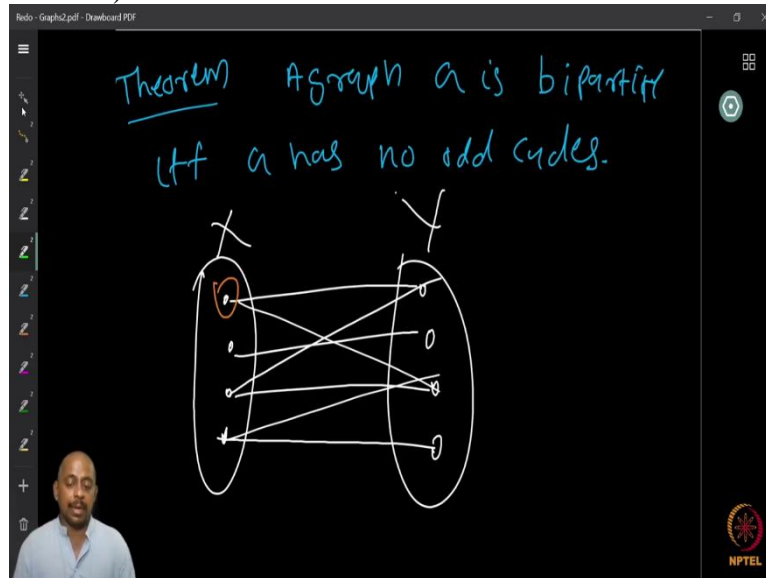 Redo - Graphs2.pdf - Drawboard PDF
Theorem A graph G is bipartite
iff G has no odd cycles.
X Y
NPTEL